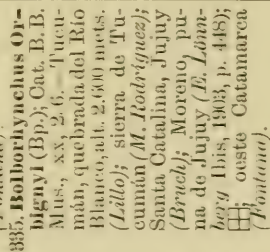 395. Bolborhynchus Or-
bignyi (Bp.); Cat. B. B.
Mus., xx, 2. 6. Tucu-
mán, quebrada del Río
Blanco, alt. 2.600 mets.
(Lillo); sierra de Tu-
cumán (M. Rodríguez);
Santa Catalina, Jujuy
(Bruch); Moreno, pu-
na de Jujuy (E. Lönn-
berg Ibis, 1903, p. 448);
oeste Catamarca
(Fontana).